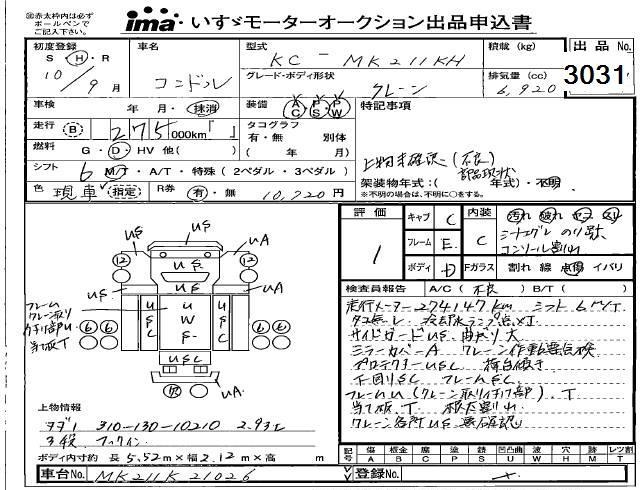 ㊟赤太枠内は必ず
ボールペンで
ご記入下さい。
ima いすゞモーターオークション出品申込書
初度登録
S・H・R
10/9月
車名
コンドル
型式
KC-MK211KH
グレード・ボディ形状
クレーン
積載(kg)
排気量(cc)
6,920
出品No.
3031
車検
年 月・抹消
装備
AC PS PW
特記事項
走行
B 275,000km「 」
タコグラフ
有・無 別体
( 年 月)
上物未確認(不良)
燃料
G・D・HV 他( )
シフト
6 M/T・A/T・特殊(2ペダル・3ペダル)
架装物年式:( 年式)・不明
※不明の場合は、不明に○をする。
色
現車 指定
R券
有・無 10,720円
評価
1
キャブ C
フレーム E
ボディ D
内装 C
汚れ 破れ
コンソール割れ
Fガラス
割れ 線 点傷 イパリ
US
UA
12
US
UA
12
US
US
US
フレーム
クレーン取り
付け部U
当て板T
USC
UWS
USC
6 6
6 6
USC
UA
UA
検査員報告
A/C(不良) B/T( )
走行メーター274147km シフト6M/T
タコ無し 冷却水ランプ点灯
サイドガードUS 曲がり大
ミラーカバーA クレーン作動要点検
プロテクターUSC 荷台傾き
下回りSC フレームSC
フレームU(クレーン取り付け部)、T
当て板、T 根太割れ
クレーン各所US 要確認
上物情報
タダノ 310-130-10210 2.93t
3段 フックイン
ボディ内寸約 長5.52m×幅2.12m×高 m
記号
傷 板金 腐 塗 錆 凹凸曲 波 穴 跡 レツ割
A B C P S U W H M T
車台No. MK211K21026
登録No.